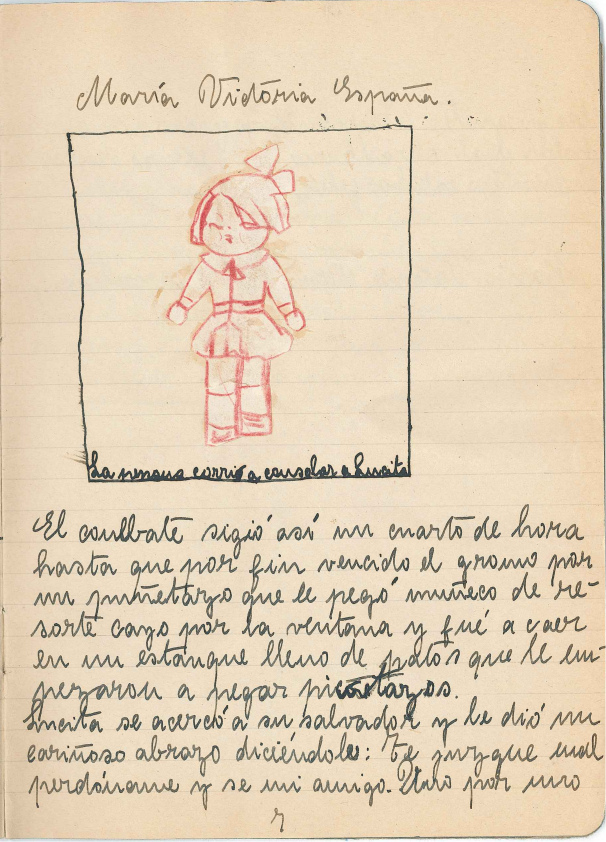 María Victoria España.
La nenana corrió a consolar a Lucita
El coulbate sigió así un cuarto de hora
hasta que por fin vencido el gromo por
un puñetazo que le pegó muñeco de re-
sorte cayo por la ventana y fué a caer
en un estanque lleno de patos que le em-
pezaron a pegar picotazos.
Lucita se acercó a su salvador y le dió un
cariñoso abrazo diciéndole: Te juzgue mal
perdóname y se mi amigo. Uno por uno
7